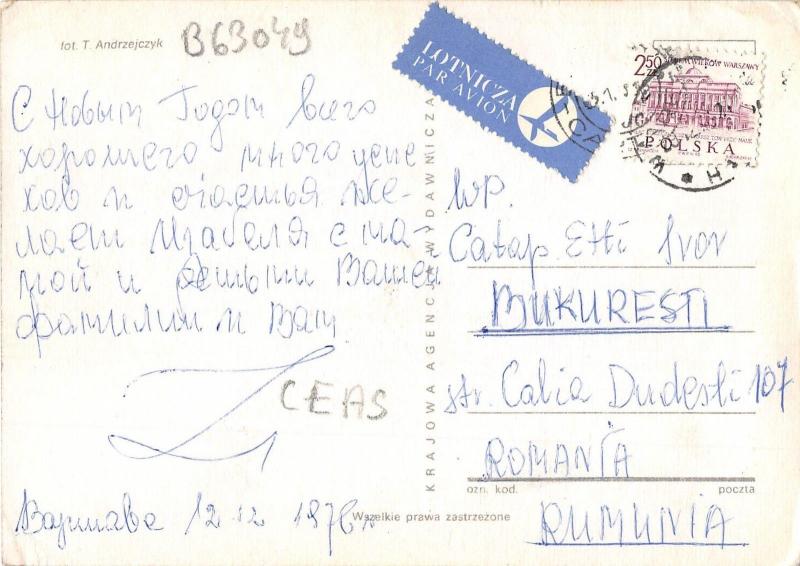 fot. T. Andrzejczyk
B63049
LOTNICZA
PAR AVION
2.50
ZŁ
POLSKA
С Новым Годом всего
хорошего много успе
хов и счастья же-
лает Изабеля с ма-
мой и Вашей
фамилии и Вам
CEAS
Варшава 12 12 1976 г
KRAJOWA AGENCJA WYDAWNICZA
Wszelkie prawa zastrzeżone
WP.
Catap. Etti Svor
BUKURESTI
str. Calia Dudesti 107
ozn. kod.
poczta
ROMANIA
RUMUNIA